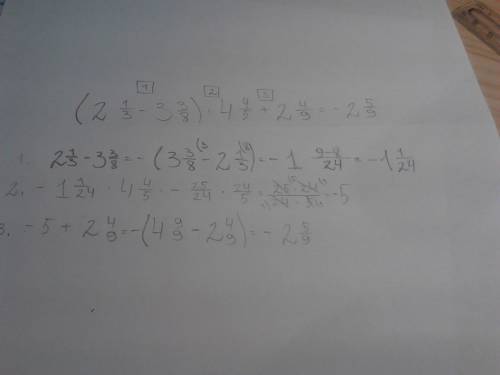 1 2 3
(2 1/3 - 3 3/8) · 4 4/5 + 2 4/9 = -2 5/9
1. 2 1/3 - 3 3/8 = -(3 3/8 (3 - 2 1/3 (8) = -1 9-8/24 = -1 1/24
2. -1 1/24 · 4 4/5 · - 25/24 · 24/5 = 25 · 24/24 · 5 = -5
3. -5 + 2 4/9 = -(4 9/9 - 2 4/9) = -2 5/9